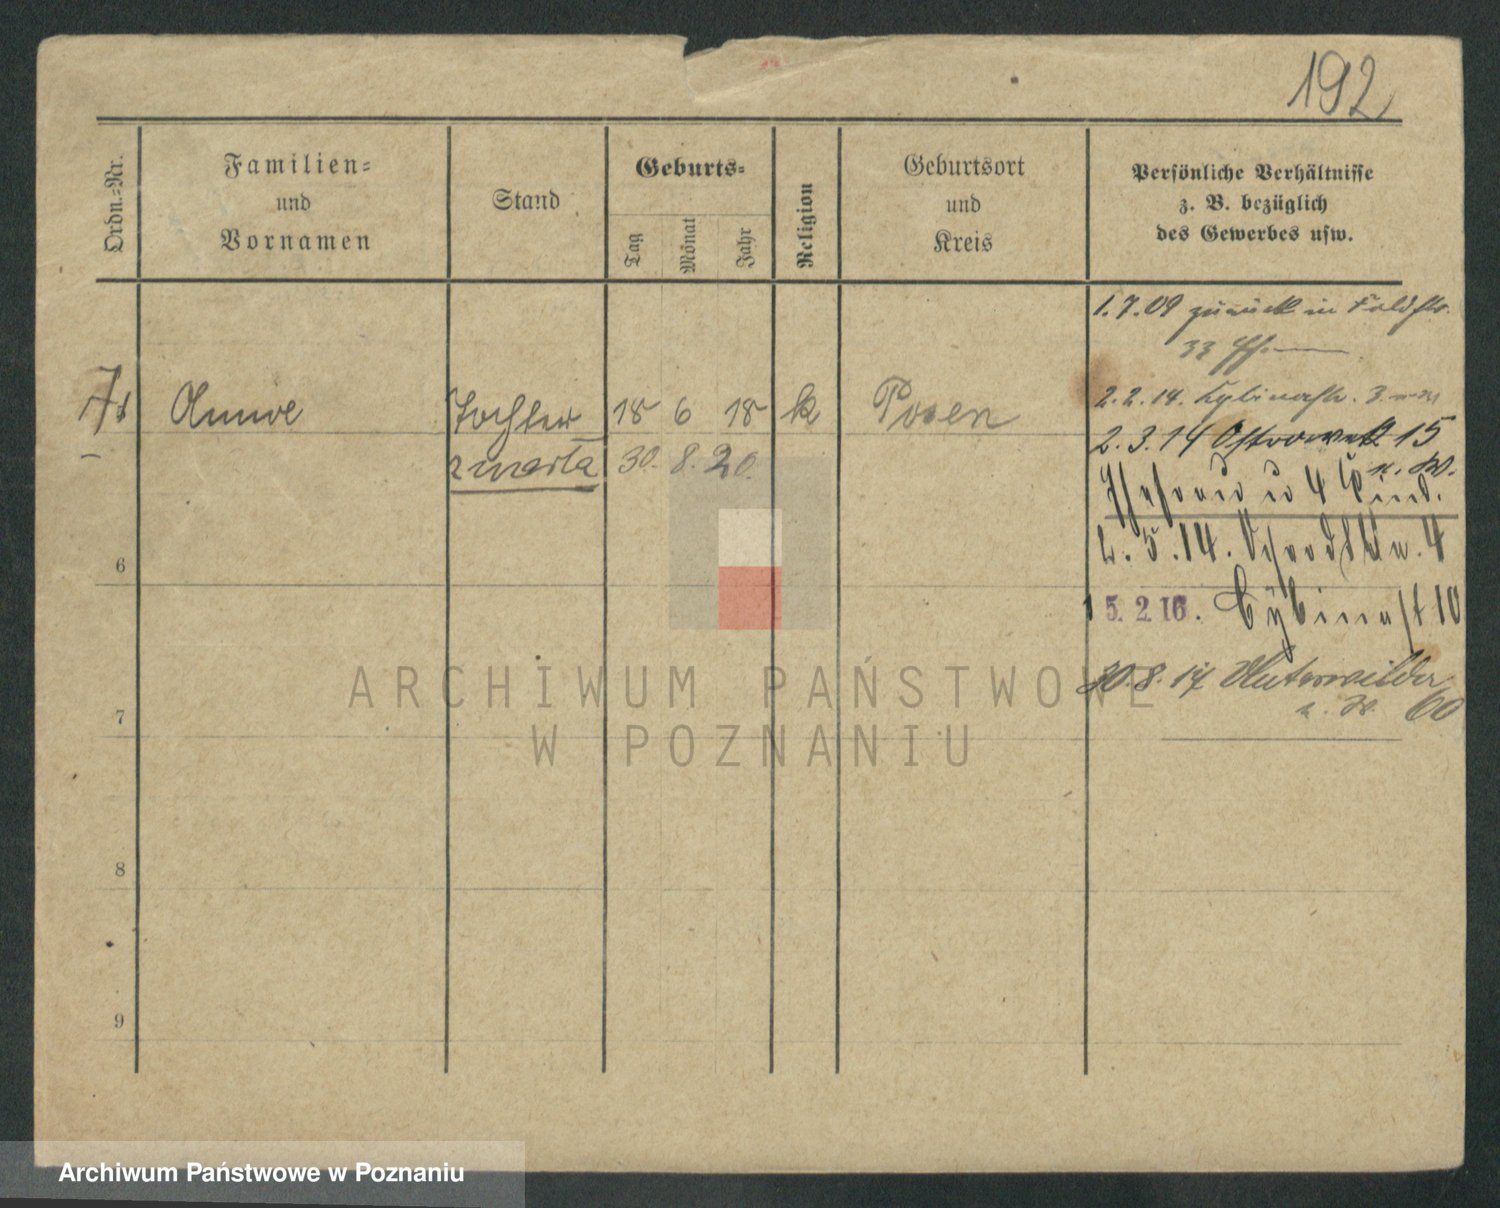 192
Ordn.-Nr.
Familien-
und
Vornamen
Stand
Geburts-
Tag
Monat
Jahr
Religion
Geburtsort
und
Kreis
Persönliche Verhältnisse
z. B. bezüglich
des Gewerbes usw.
1.7.09 zurück in
33
Tochter 18 6 18 k Posen
2.2.14.
2.3.14 Ostrowek 15
zmarła 30. 8. 20.
n. W.
u 4 Kind.
2.5.14. 4
6
15.2.16. Cybinast 10
30.8.17 Unterwilda
60
7
8
9
ARCHIWUM PAŃSTWOWE
W POZNANIU
Archiwum Państwowe w Poznaniu